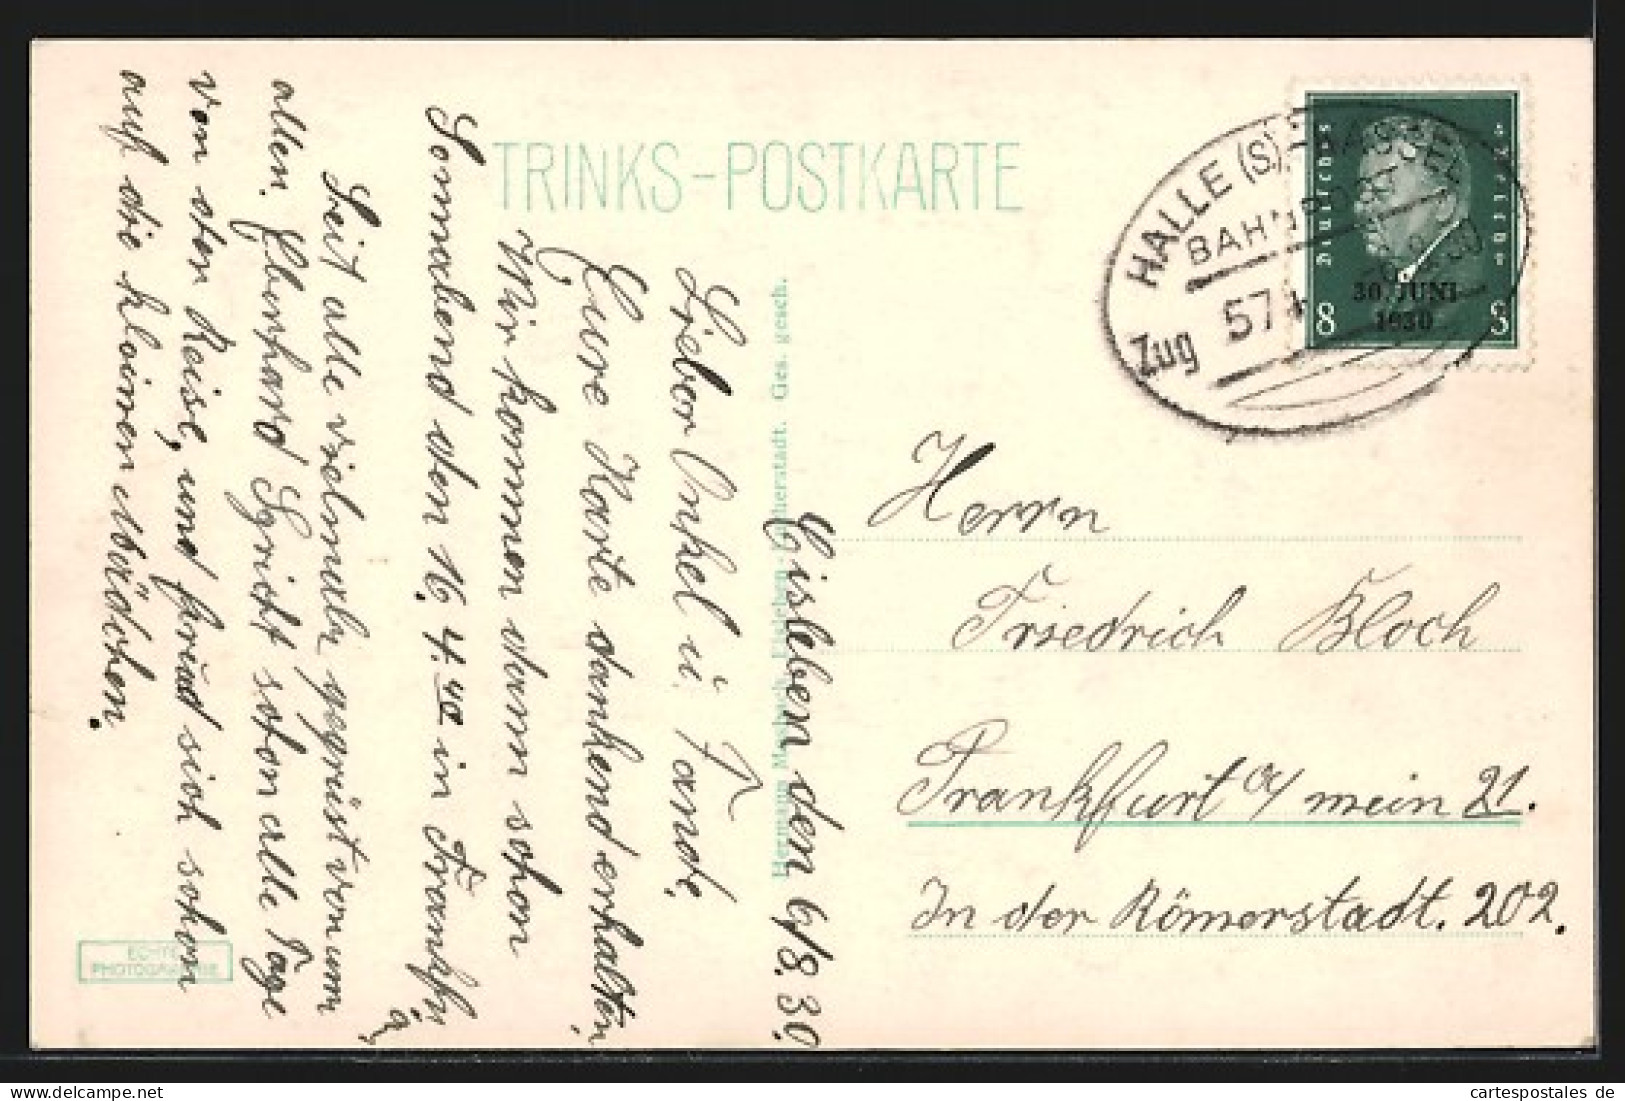 TRINKS-POSTKARTE
Eisleben den 6/8. 30.
Lieber Onkel u. Tande,
Eure Karte dankend erhalten,
Wir kommen dann schon
Sonnabend den 16. 4.40 in Frankfu
a/
Seit alle vielmals gegrüst von um
allen. Ebenhard Spricht schon alle Tage
von der Reise, und freud sich schon
auf die kleinen Mädchen.
Hermann Eisleben-Lutherstadt. Ges. gesch.
ECHTE
PHOTOGRAPHIE
HALLE (S)-KASSEL
BAHNPOST
Zug 574
6.8.30
Deutsches Reich
30. JUNI
1930
8 8
Herrn
Friedrich Bloch
Frankfurt a/ mein 21.
In der Römerstadt. 202.
cartespostales de